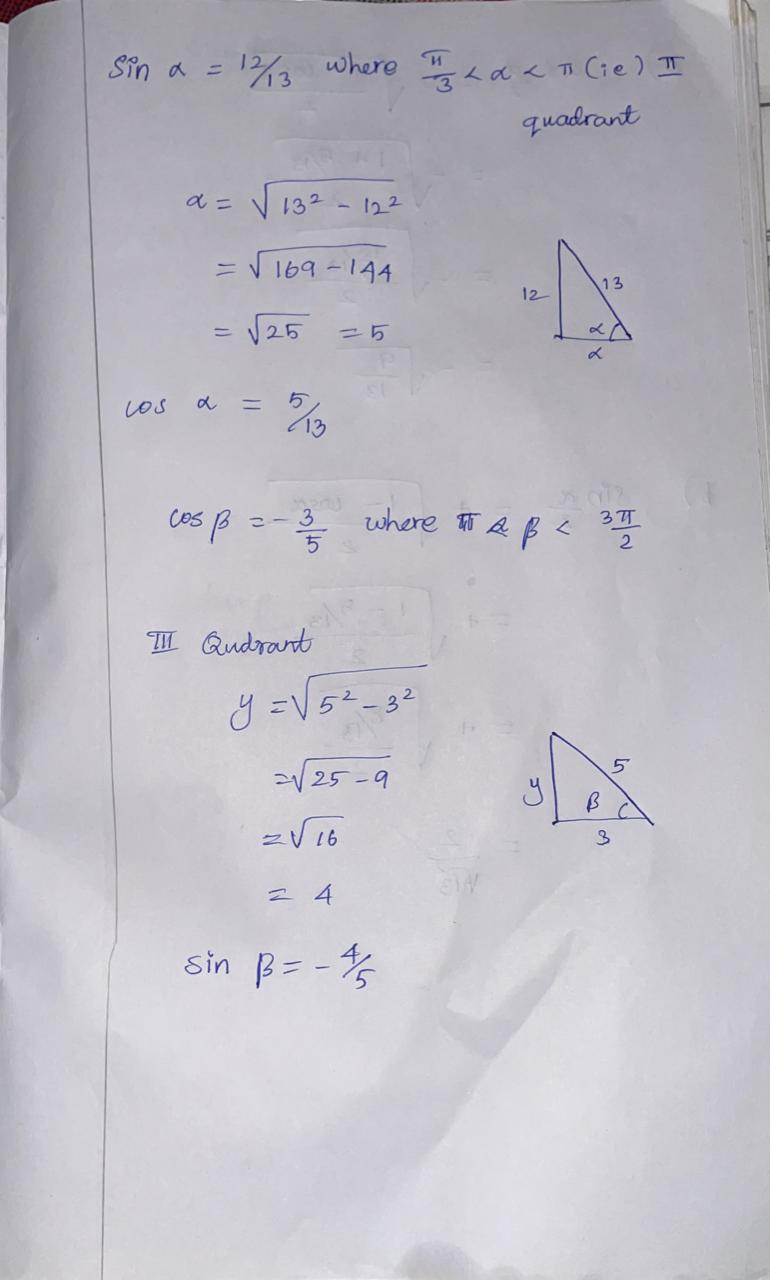 Sin α = 12/13 where π/3 < α < π (ie) II
quadrant
α = √13² - 12²
= √169 - 144
= √25 = 5
12
13
α
α
cos α = 5/13
cos β = - 3/5 where π < β < 3π/2
III Qudrant
y = √5² - 3²
= √25 - 9
= √16
= 4
y
5
β
3
sin β = - 4/5